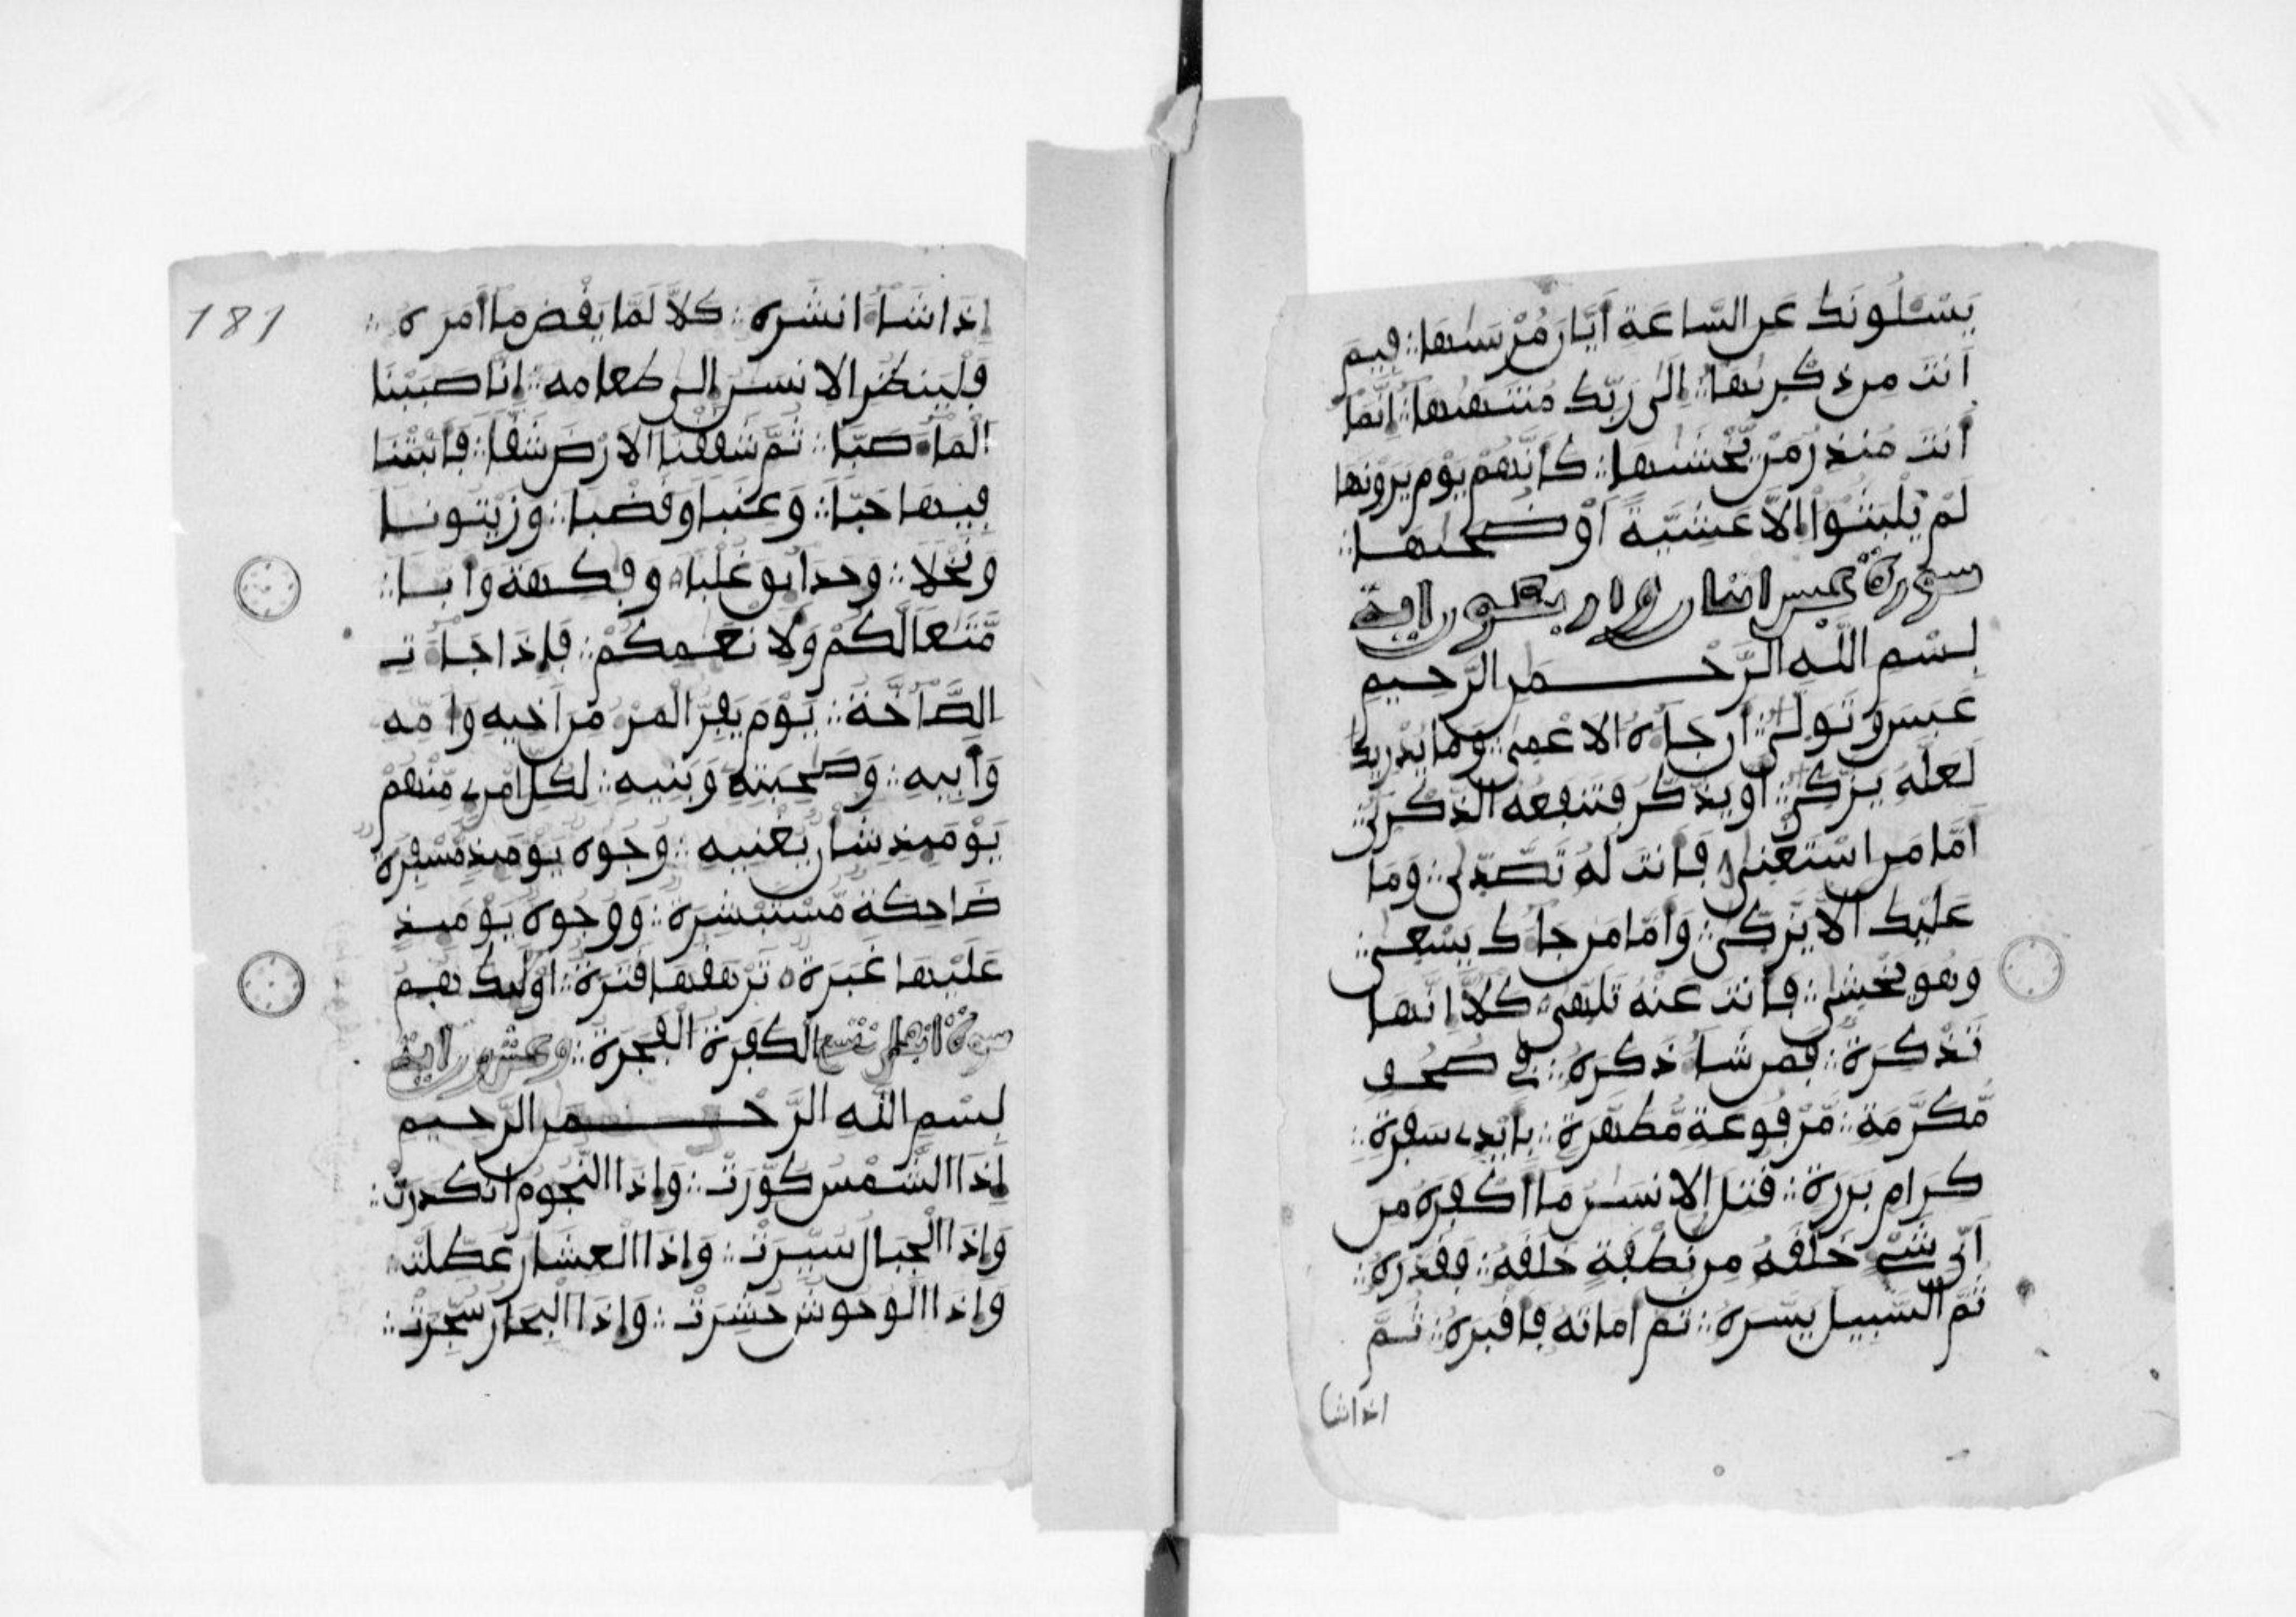 يَسْـَٔلُونَكَ عَنِ السَّاعَةِ أَيَّانَ مُرْسٰىهَا ۞ فِيمَ
أَنتَ مِن ذِكْرٰىهَا ۞ إِلٰى رَبِّكَ مُنتَهٰىهَا ۞ إِنَّمَا
أَنتَ مُنذِرُ مَنْ يَّخْشٰىهَا ۞ كَأَنَّهُمْ يَوْمَ يَرَوْنَهَا
لَمْ يَلْبَثُوا إِلَّا عَشِيَّةً أَوْ ضُحٰىهَا
سورة عبس اثنان واربعون اية
بِسْمِ اللَّهِ الرَّحْمٰنِ الرَّحِيمِ
عَبَسَ وَتَوَلّٰى أَن جَاءَهُ الأَعْمٰى وَمَا يُدْرِيكَ
لَعَلَّهُ يَزَّكّٰى أَوْ يَذَّكَّرُ فَتَنفَعُهُ الذِّكْرٰى
أَمَّا مَنِ اسْتَغْنٰى فَأَنتَ لَهُ تَصَّدّٰى وَمَا
عَلَيْكَ أَلَّا يَزَّكّٰى وَأَمَّا مَن جَاءَكَ يَسْعٰى
وَهُوَ يَخْشٰى فَأَنتَ عَنْهُ تَلَهّٰى كَلَّا إِنَّهَا
تَذْكِرَةٌ فَمَن شَاءَ ذَكَرَهُ فِي صُحُفٍ
مُّكَرَّمَةٍ مَّرْفُوعَةٍ مُّطَهَّرَةٍ بِأَيْدِي سَفَرَةٍ
كِرَامٍ بَرَرَةٍ قُتِلَ الإِنسٰنُ مَا أَكْفَرَهُ مِنْ
أَيِّ شَيْءٍ خَلَقَهُ مِن نُّطْفَةٍ خَلَقَهُ فَقَدَّرَهُ
ثُمَّ السَّبِيلَ يَسَّرَهُ ثُمَّ أَمَاتَهُ فَأَقْبَرَهُ ثُمَّ
اذا شا
181
إِذَا شَاءَ انشَرَهُ كَلَّا لَمَّا يَقْضِ مَا أَمَرَهُ
فَلْيَنظُرِ الإِنسٰنُ إِلٰى طَعَامِهِ إِنَّا صَبَبْنَا
الْمَاءَ صَبًّا ثُمَّ شَقَقْنَا الأَرْضَ شَقًّا فَأَنبَتْنَا
فِيهَا حَبًّا وَعِنَبًا وَقَضْبًا وَزَيْتُونًا
وَنَخْلًا وَحَدَائِقَ غُلْبًا وَفٰكِهَةً وَأَبًّا
مَّتٰعًا لَّكُمْ وَلِأَنْعٰمِكُمْ فَإِذَا جَاءَتِ
الصَّاخَّةُ يَوْمَ يَفِرُّ الْمَرْءُ مِنْ أَخِيهِ وَأُمِّهِ
وَأَبِيهِ وَصٰحِبَتِهِ وَبَنِيهِ لِكُلِّ امْرِئٍ مِّنْهُمْ
يَوْمَئِذٍ شَأْنٌ يُغْنِيهِ وُجُوهٌ يَوْمَئِذٍ مُّسْفِرَةٌ
ضَاحِكَةٌ مُّسْتَبْشِرَةٌ وَوُجُوهٌ يَوْمَئِذٍ
عَلَيْهَا غَبَرَةٌ تَرْهَقُهَا قَتَرَةٌ أُولٰئِكَ هُمُ
الْكَفَرَةُ الْفَجَرَةُ وعشرون اية
بِسْمِ اللَّهِ الرَّحْمٰنِ الرَّحِيمِ
إِذَا الشَّمْسُ كُوِّرَتْ وَإِذَا النُّجُومُ انكَدَرَتْ
وَإِذَا الْجِبَالُ سُيِّرَتْ وَإِذَا الْعِشَارُ عُطِّلَتْ
وَإِذَا الْوُحُوشُ حُشِرَتْ وَإِذَا الْبِحَارُ سُجِّرَتْ